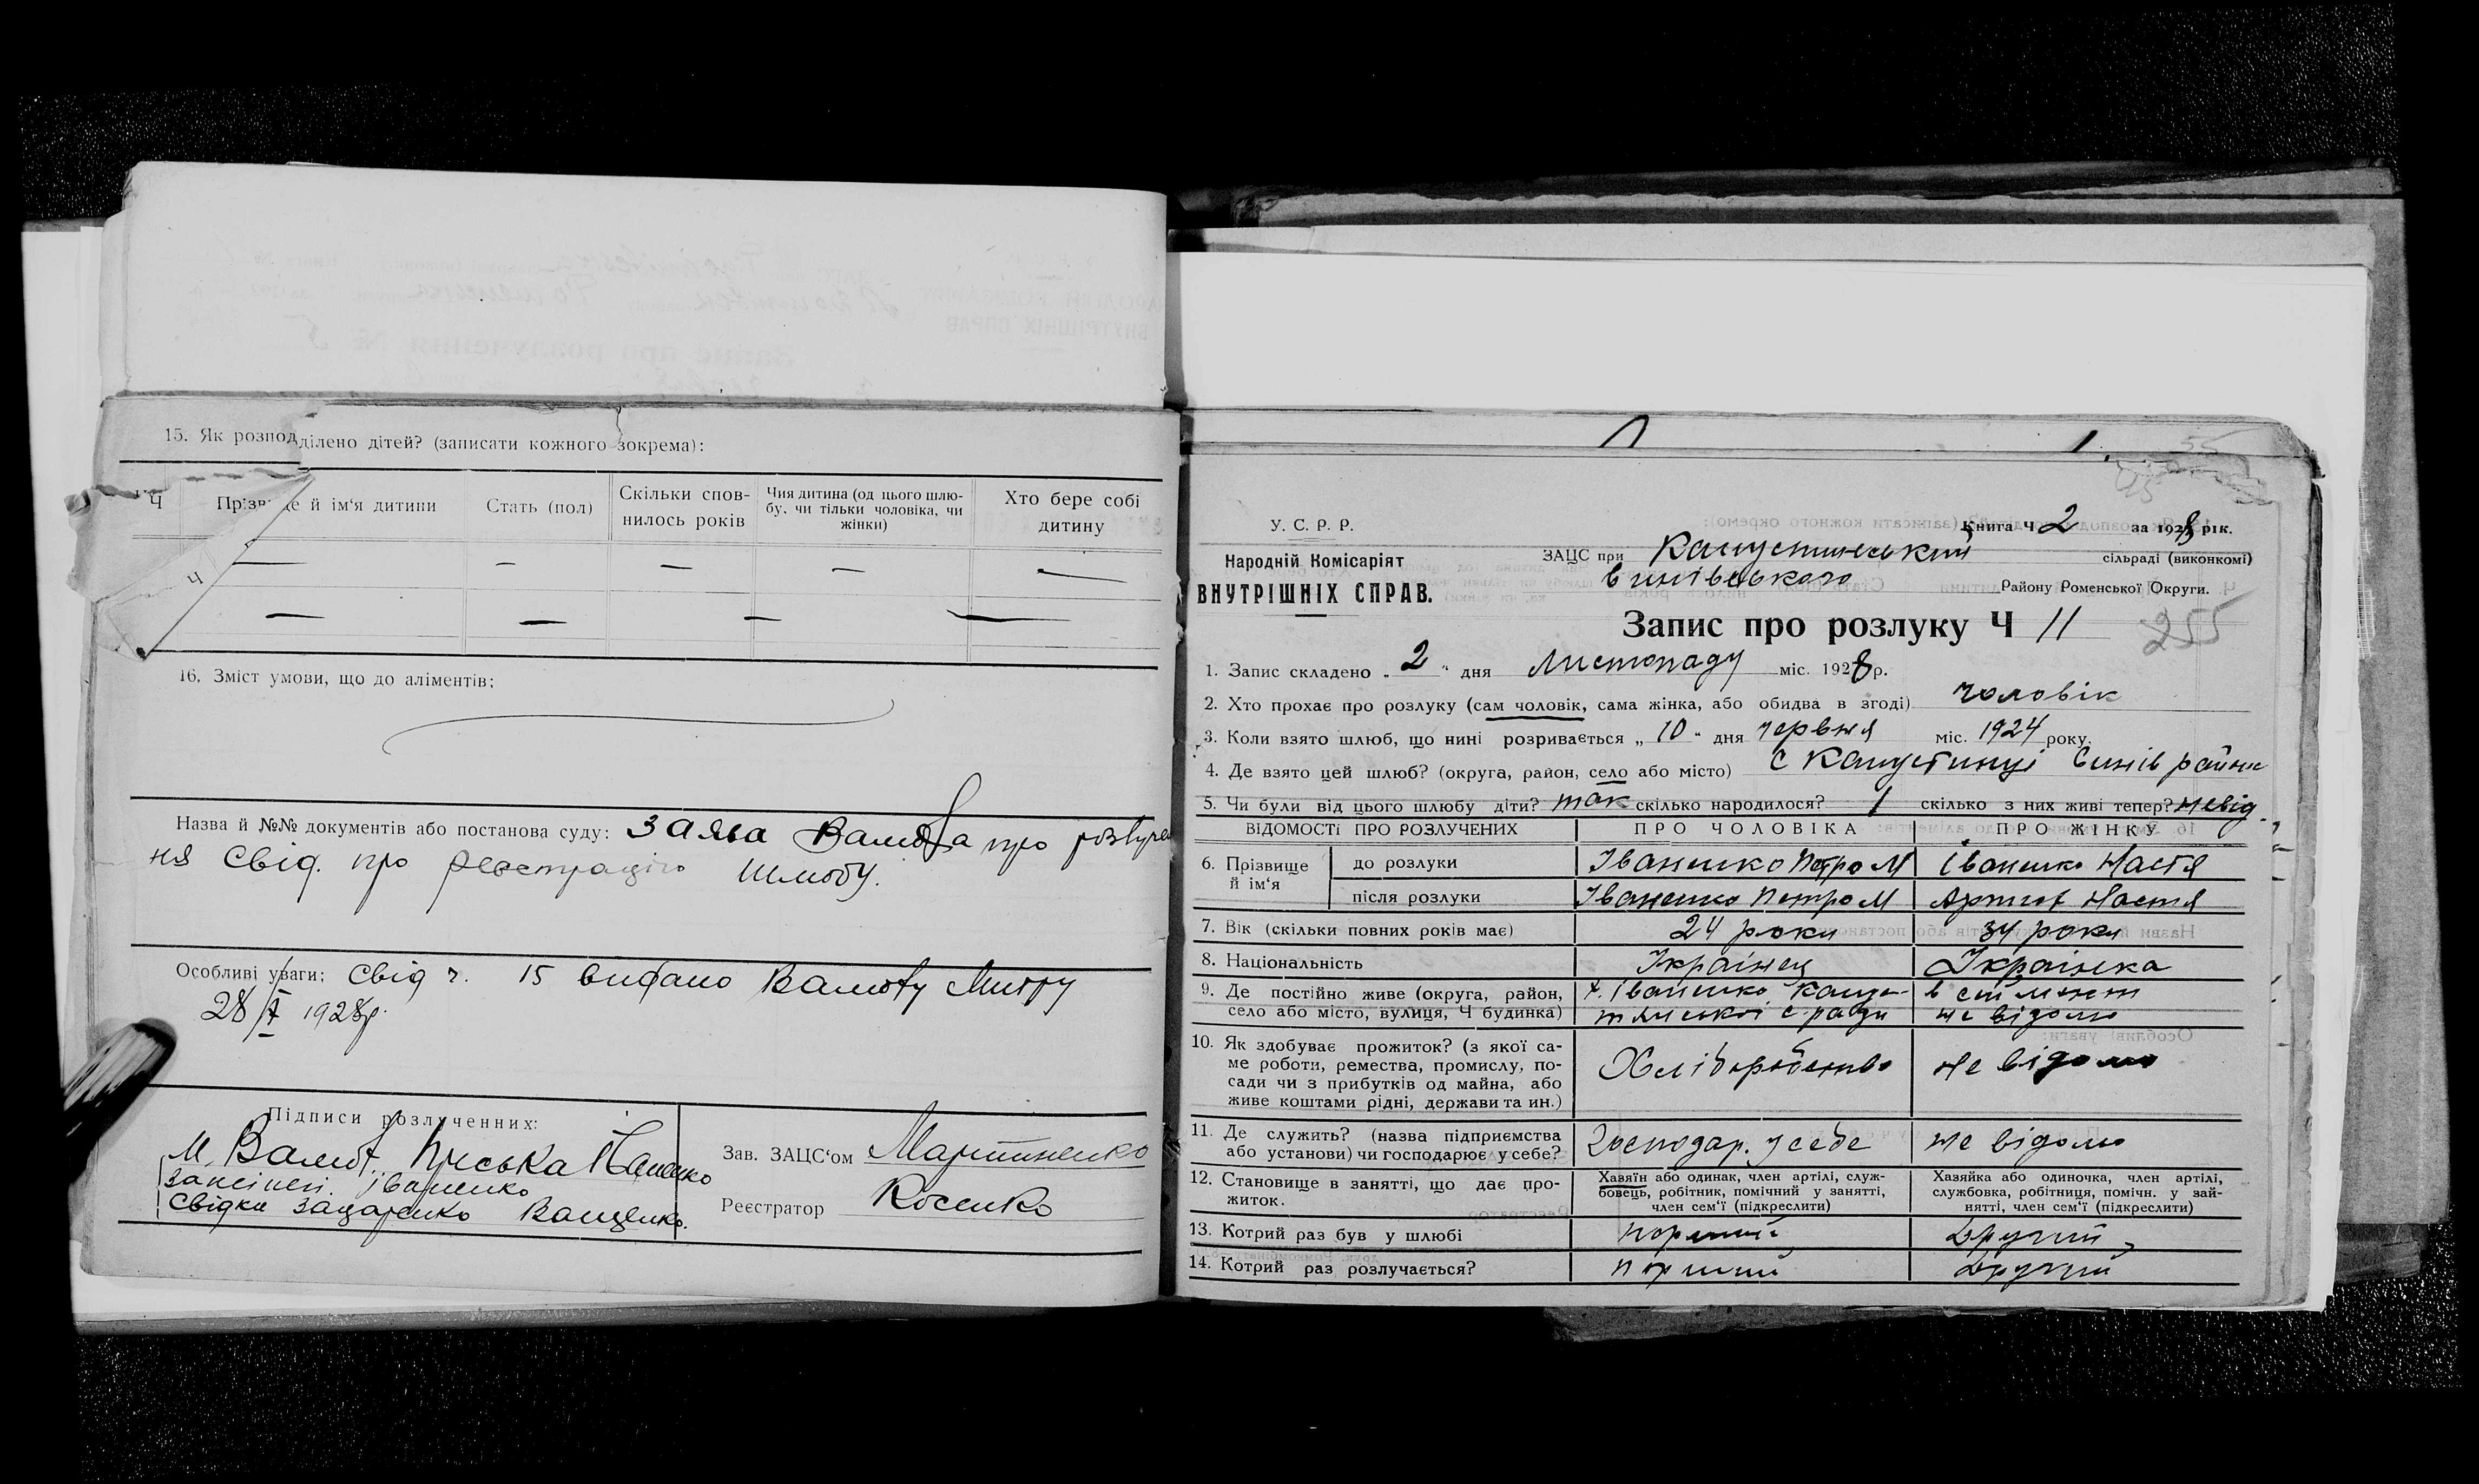 15. Як розподілено дітей? (записати кожного зокрема):
Ч Прізвище й ім‘я дитини Стать (пол) Скільки спов-нилось років Чия дитина (од цього шлю-бу, чи тільки чоловіка, чи жінки) Хто бере собі дитину
Ч — — — — —
— — — —
16. Зміст умови, що до аліментів:
Назва й №№ документів або постанова суду: Заява про
ня Свід. про реєстрацію шлюбу.
Особливі уваги: Свід ч. 15 видано Митру
28/X 1928р.
Підписи розлученних:
М.
Іваненко
Свідки Ващенко.
Зав. ЗАЦС‘ом Мартиненко
Реєстратор Косенко
У. С. Р. Р.
Народній Комісаріят
ВНУТРІШНІХ СПРАВ.
Книга Ч 2 за 1928 рік.
ЗАЦС при Капустинський сільраді (виконкомі)
Синівського Району Роменської Округи.
Запис про розлуку Ч 11
255
1. Запис складено „ 2 “ дня Листопаду міс. 1928 р.
2. Хто прохає про розлуку (сам чоловік, сама жінка, або обидва в згоді) чоловік
3. Коли взято шлюб, що нині розривається „ 10 “ дня червня міс. 1924 року.
4. Де взято цей шлюб? (округа, район, село або місто) с Капустинці Синів району
5. Чи були від цього шлюбу діти? так скілько народилося? 1 скілько з них живі тепер? невід.
ВІДОМОСТІ ПРО РОЗЛУЧЕНИХ ПРО ЧОЛОВІКА ПРО ЖІНКУ
6. Прізвище й ім‘я до розлуки Іваненко Петро М Іваненко Настя
після розлуки Іваненко Петро М Настя
7. Вік (скільки повних років має) 24 роки 34 роки
8. Національність Українец Українка
9. Де постійно живе (округа, район, х. Іваненко Капус- в сій мент
село або місто, вулиця, Ч будинка) тянської с. ради не відомо
10. Як здобуває прожиток? (з якої са-
ме роботи, ремества, промислу, по-
сади чи з прибутків од майна, або
живе коштами рідні, держави та ин.)
Хліборобство не відомо
11. Де служить? (назва підприємства
або установи) чи господарює у себе?
Господар. у себе не відомо
12. Становище в занятті, що дає про-
житок.
Хазяїн або одинак, член артілі, служ-
бовець, робітник, помічний у занятті,
член сем‘ї (підкреслити)
Хазяйка або одиночка, член артілі,
службовка, робітниця, помічн. у зай-
нятті, член сем‘ї (підкреслити)
13. Котрий раз був у шлюбі перший Другий
14. Котрий раз розлучається? перший Другий